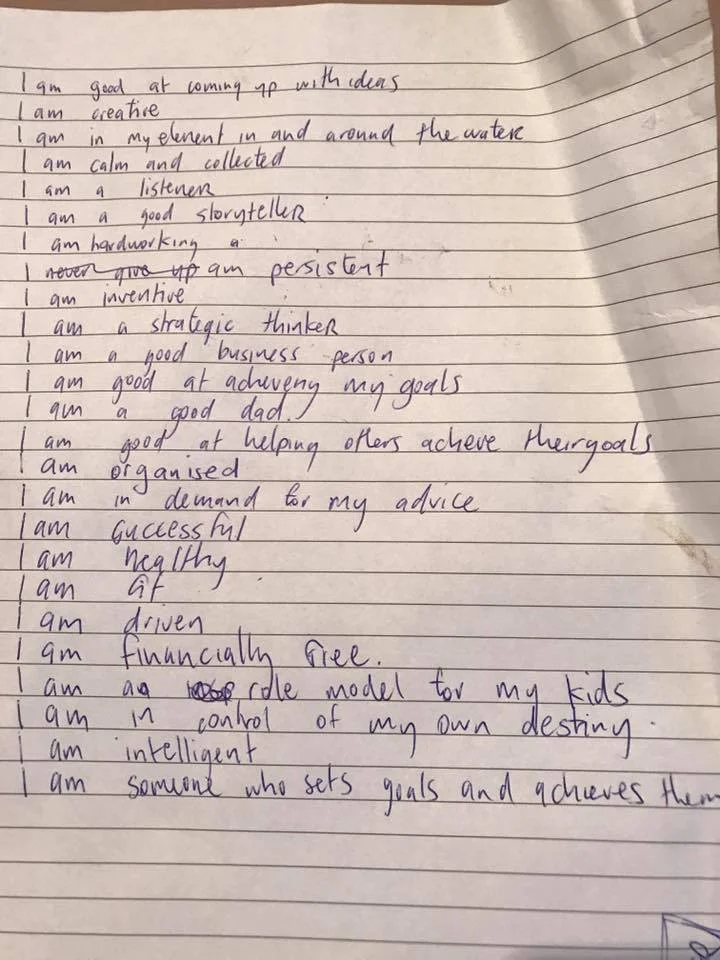 I am good at coming up with ideas
I am creative
I am in my element in and around the water
I am calm and collected
I am a listener
I am a good storyteller
I am hardworking a
I never give up am persistent
I am inventive
I am a strategic thinker
I am a good business person
I am good at acheveny my goals
I am a good dad.
I am good at helping others acheve their goals
I am organised
I am in demand for my advice
I am successful
I am healthy
I am fit
I am driven
I am financially free.
I am a role model for my kids
I am in control of my own destiny.
I am intelligent
I am someone who sets goals and achieves them